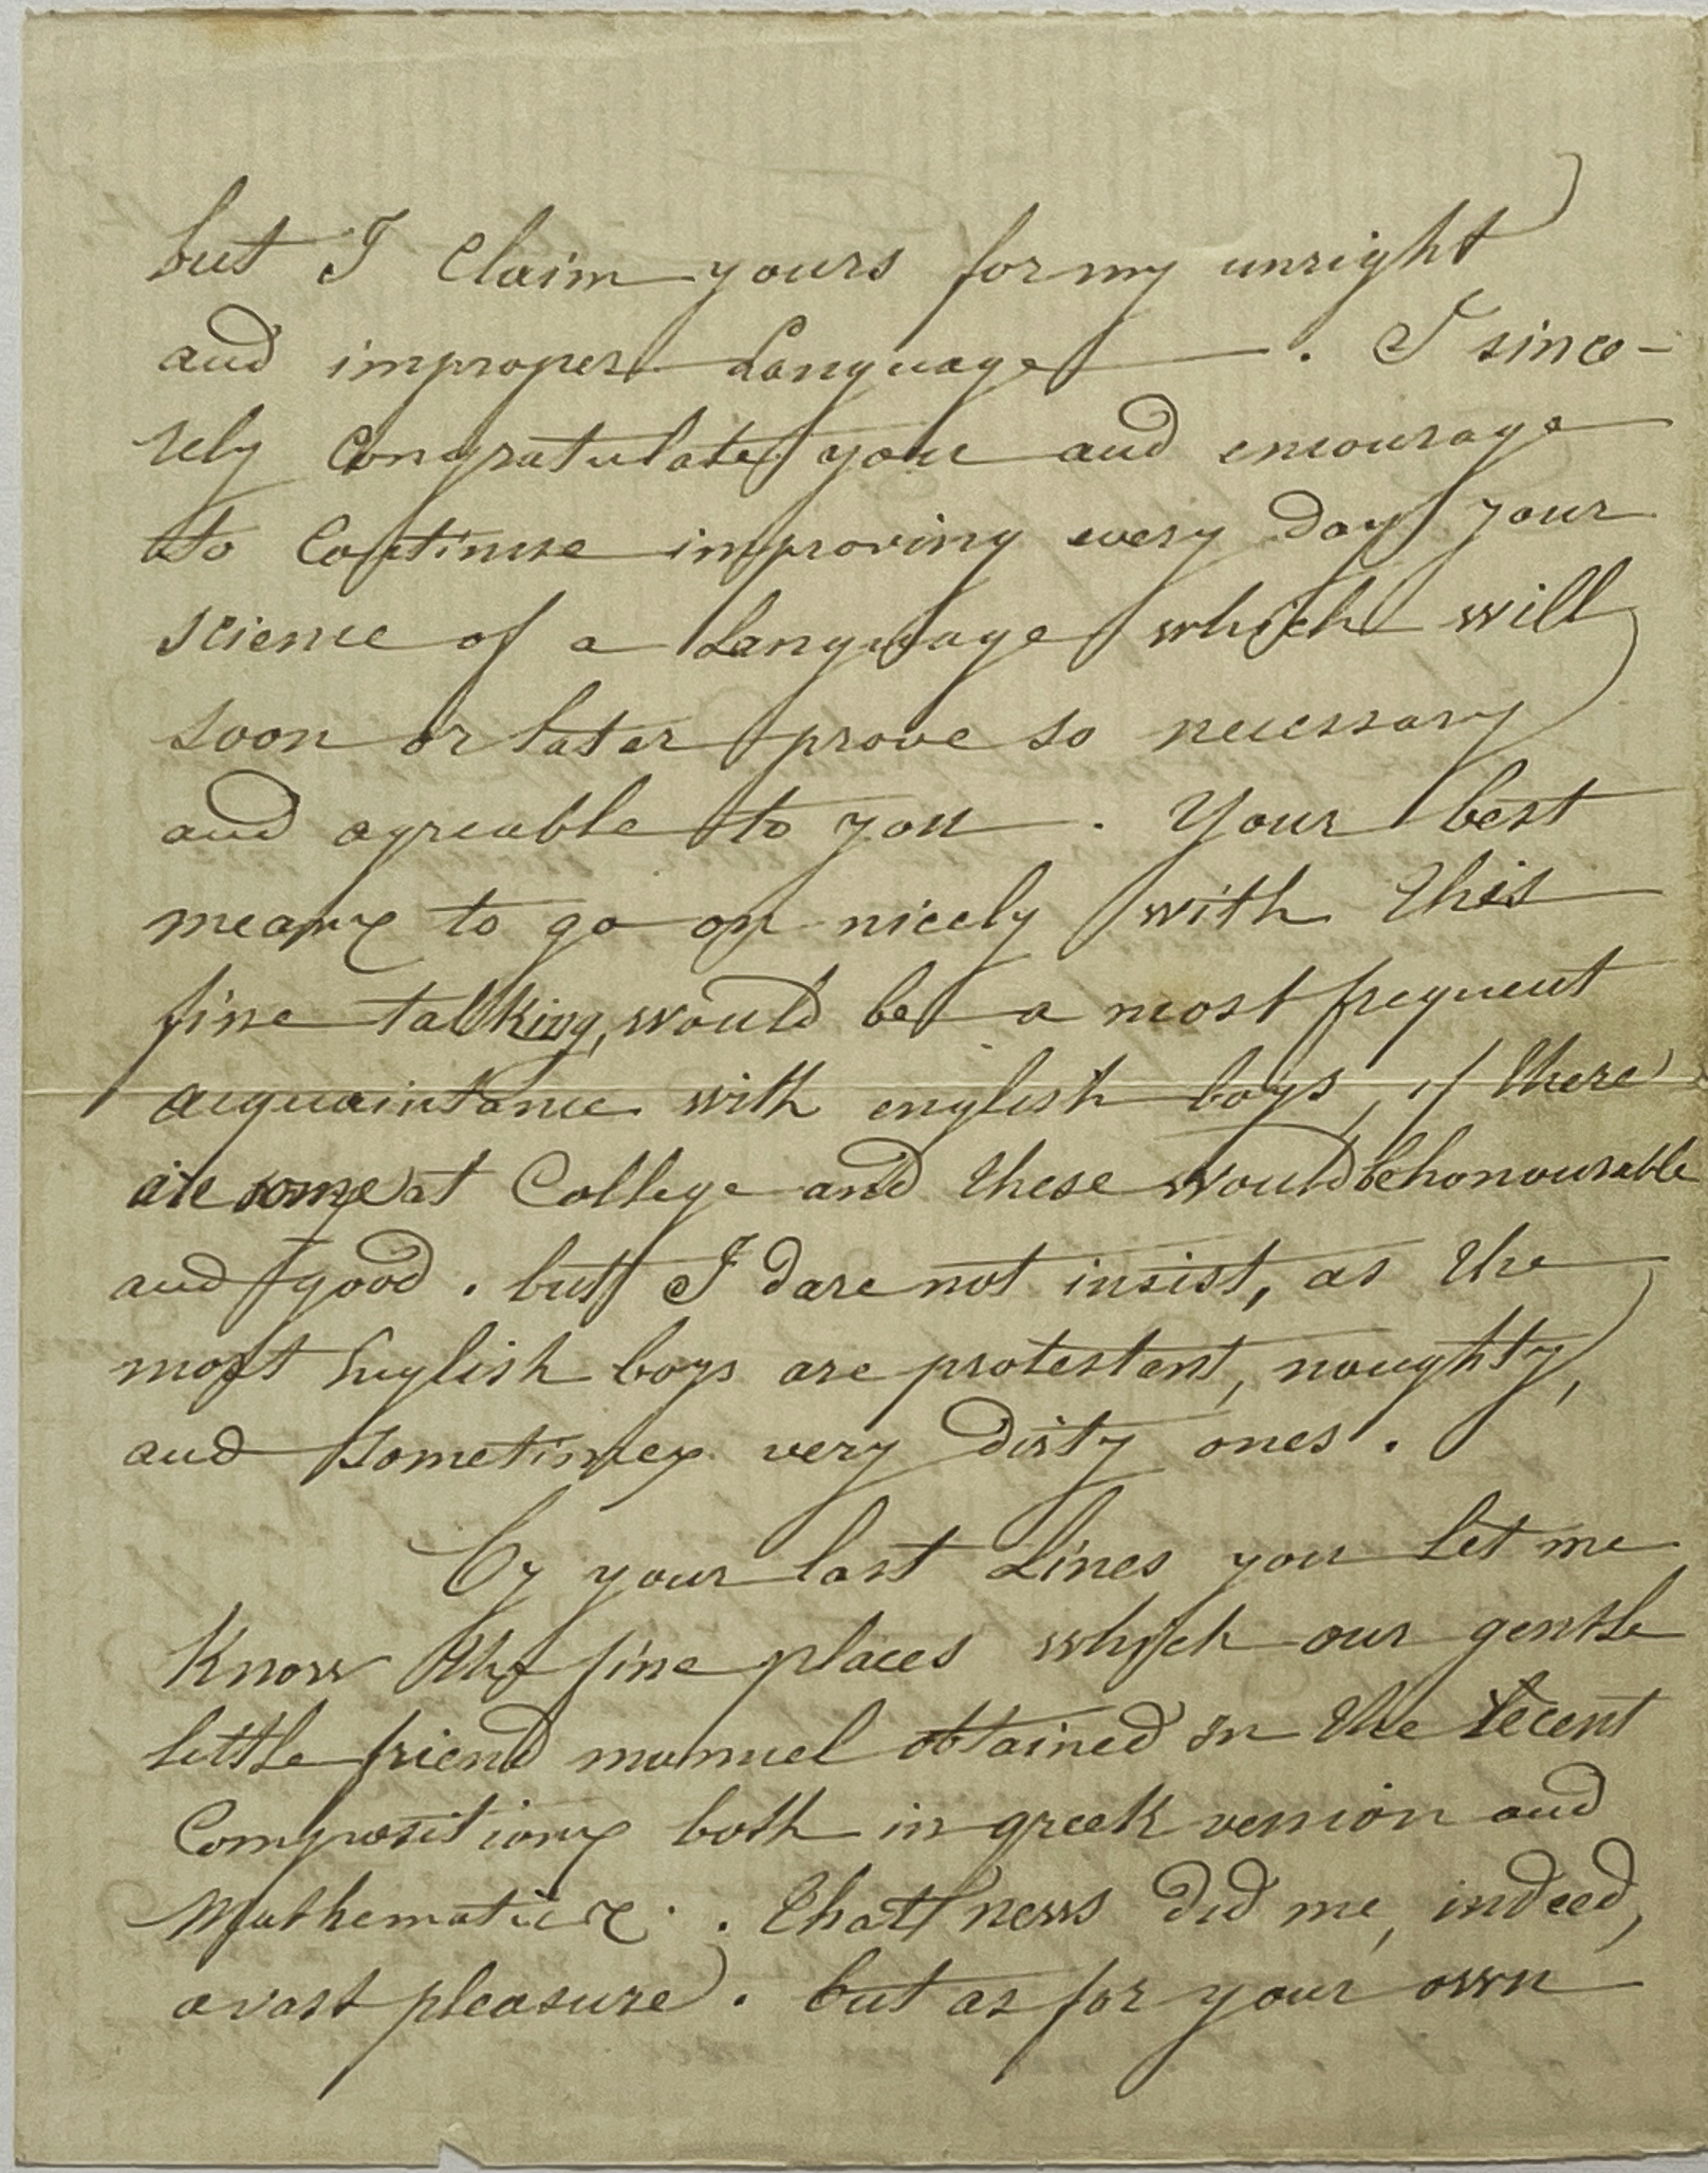 but I Claim yours for my unright
and improper Language. I since-
rely Congratulate you and encourage
to Continue improving every day your
science of a Language which will
soon or later prove so necessary
and agreable to you. Your best
means to go on nicely with this
fine talking, would be a most frequent
acquaintance with english boys, if there
are some at College and these would be honourable
and good. but I dare not insist, as the
most English boys are protestant, noughty,
and sometimes very dirty ones.
By your last Lines you Let me
Know the fine places which our gentle
little friend manuel obtained in the recent
Compositions both in greek version and
Mathematics. that news did me, indeed,
a vast pleasure. but as for your own